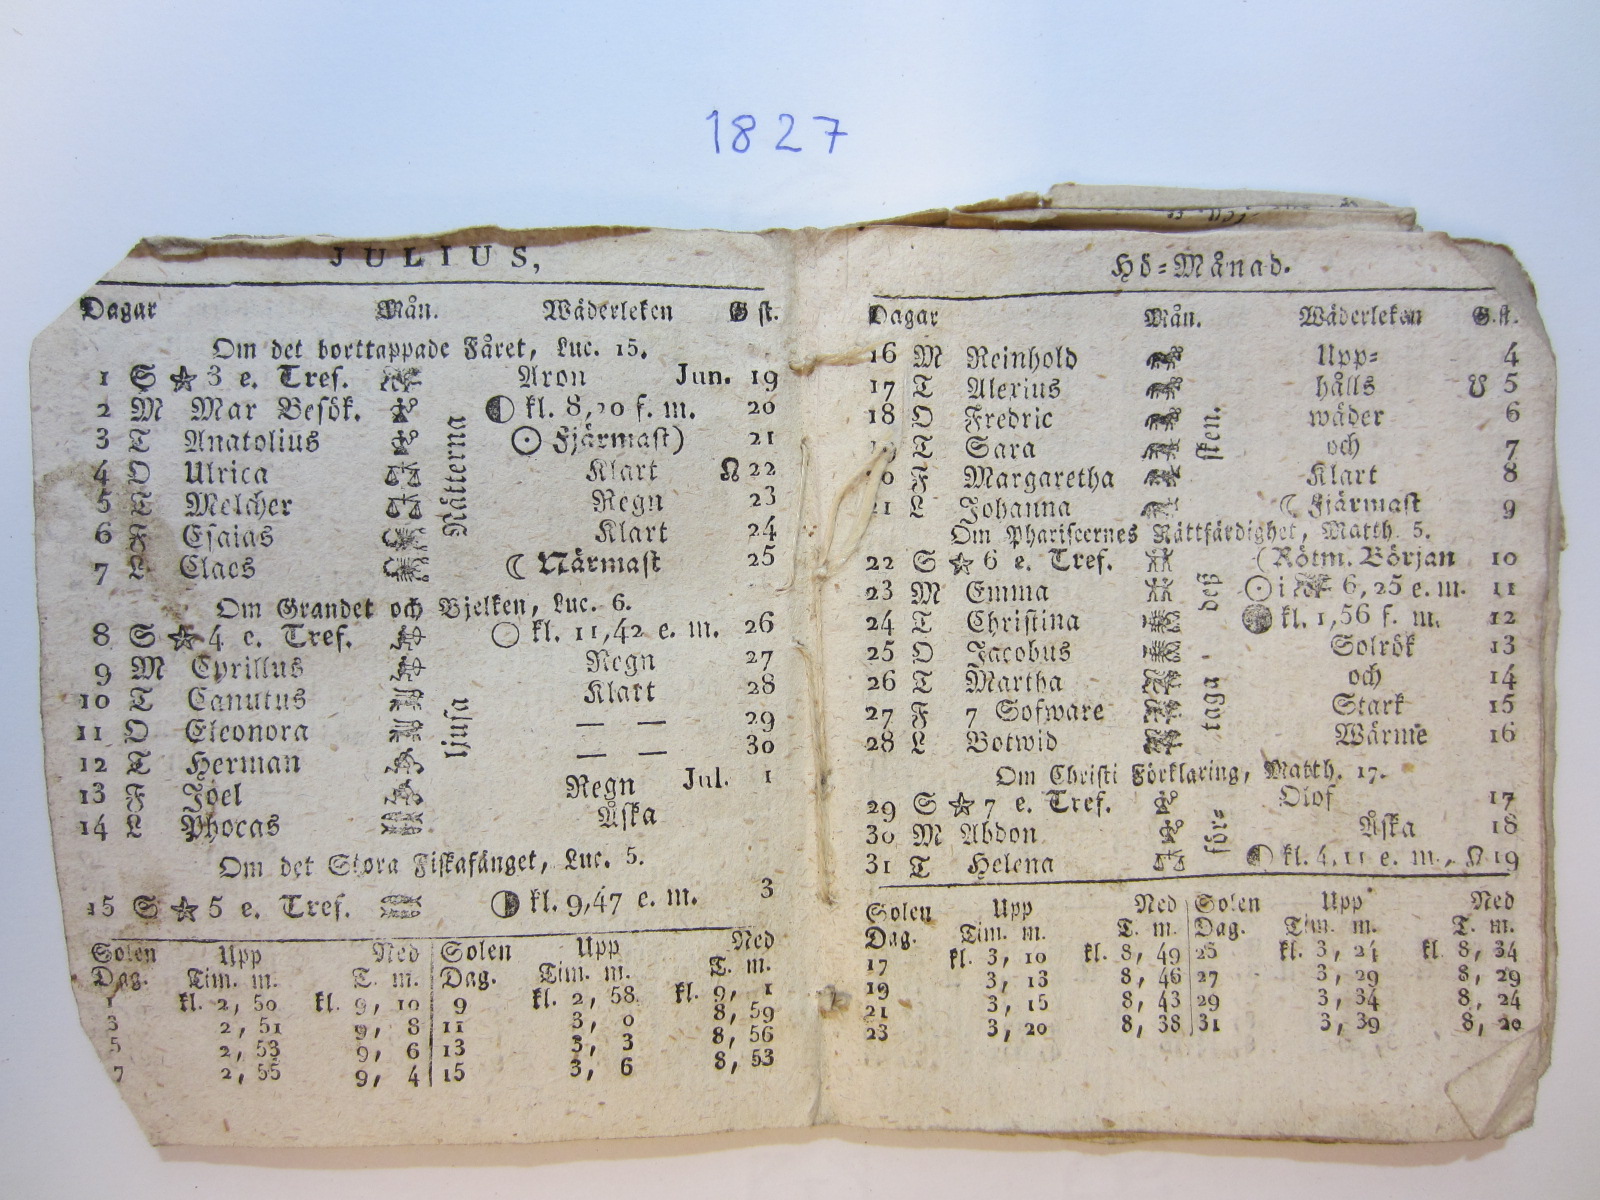 1827
JULIUS,
Dagar Mån. Wäderleken G st.
Om det borttappade Fåret, Luc. 15.
1 S ☆ 3 e. Tref. Aron Jun. 19
2 M Mar Besök. kl. 8,20 f. m. 20
3 T Anatolius ☉ Fjärmast) 21
4 O Ulrica Klart ☊ 22
5 T Melcher Regn 23
6 F Esaias Klart 24
7 L Claes ☾ Närmast 25
Nätterna
Om Grandet och Bjelken, Luc. 6.
8 S ☆ 4 e. Tref. kl. 11,42 e. m. 26
9 M Cyrillus Regn 27
10 T Canutus Klart 28
11 O Eleonora — — 29
12 T Herman — — 30
13 F Joel Regn Jul. 1
14 L Phocas Åska
ljusa
Om det Stora Fiskafänget, Luc. 5.
15 S ☆ 5 e. Tref. kl. 9,47 e. m. 3
Solen Upp Ned Solen Upp Ned
Dag. Tim. m. T. m. Dag. Tim. m. T. m.
1 kl. 2, 50 kl. 9, 10 9 kl. 2, 58 kl. 9, 1
3 2, 51 9, 8 11 3, 0 8, 59
5 2, 53 9, 6 13 3, 3 8, 56
7 2, 55 9, 4 15 3, 6 8, 53
Hö-Månad.
Dagar Mån. Wäderleken G.st.
16 M Reinhold Upp- 4
17 T Alexius hålls ☋ 5
18 O Fredric wäder 6
T Sara och 7
F Margaretha Klart 8
L Johanna ☾ Fjärmast 9
sken.
Om Phariseernes Rättfärdighet, Matth. 5.
22 S ☆ 6 e. Tref. (Rötm. Början 10
23 M Emma ☉ i 6, 25 e. m. 11
24 T Christina kl. 1,56 f. m. 12
25 O Jacobus Solrök 13
26 T Martha och 14
27 F 7 Sofware Stark 15
28 L Botwid Wärme 16
deß
taga
Om Christi Förklaring, Matth. 17.
29 S ☆ 7 e. Tref. Olof 17
30 M Abdon Åska 18
31 T Helena kl. 4,11 e. m. ☊ 19
för-
Solen Upp Ned Solen Upp Ned
Dag. Tim. m. T. m. Dag. Tim. m. T. m.
17 kl. 3, 10 kl. 8, 49 25 kl. 3, 24 kl. 8, 34
19 3, 13 8, 46 27 3, 29 8, 29
21 3, 15 8, 43 29 3, 34 8, 24
23 3, 20 8, 38 31 3, 39 8, 20